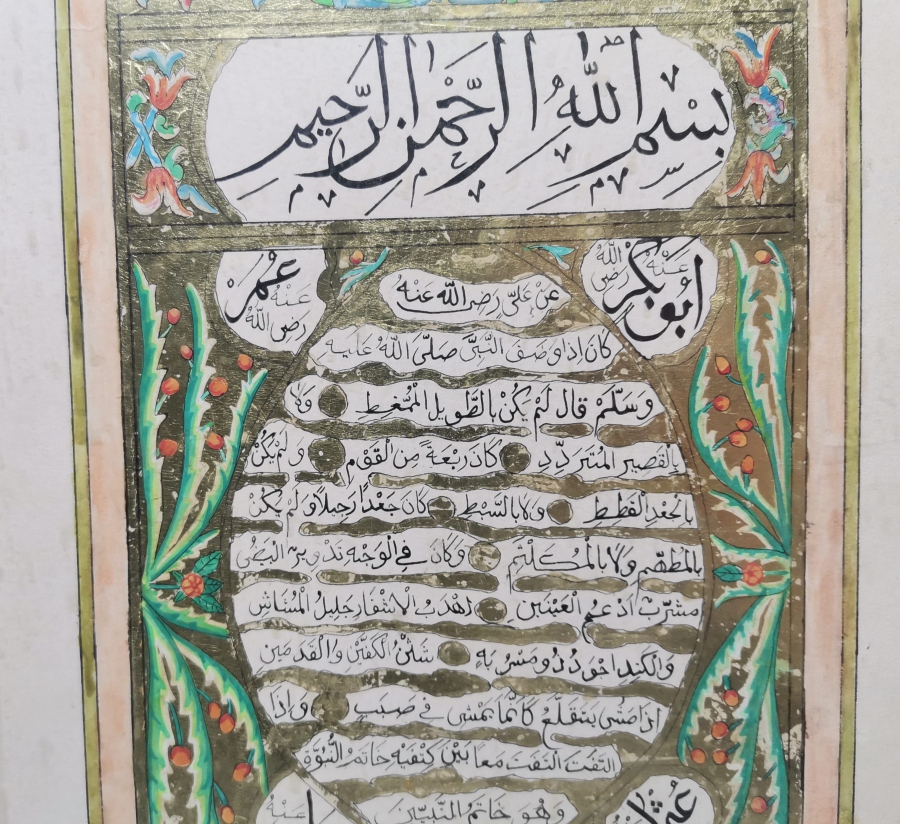 بِسْمِ اللهِ الرَّحْمٰنِ الرَّحِيمِ
أَبُو بَكْرٍ رَضِيَ اللهُ عَنْهُ
عُمَرْ رَضِيَ اللهُ عَنْهُ
عَنْ عَلِيٍّ رَضِيَ اللهُ عَنْهُ
كَانَ إِذَا وَصَفَ النَّبِيَّ صَلَّى اللهُ عَلَيْهِ
وَسَلَّمَ قَالَ لَمْ يَكُنْ بِالطَّوِيلِ الْمُمَّغِطِ وَلَا
بِالْقَصِيرِ الْمُتَرَدِّدِ كَانَ رَبْعَةً مِنَ الْقَوْمِ وَلَمْ يَكُنْ
بِالْجَعْدِ الْقَطِطِ وَلَا بِالسَّبْطِ كَانَ جَعْدًا رَجِلًا وَلَمْ يَكُنْ
بِالْمُطَهَّمِ وَلَا بِالْمُكَلْثَمِ وَكَانَ فِي الْوَجْهِ تَدْوِيرٌ
مُشْرَبٌ أَدْعَجُ الْعَيْنَيْنِ أَهْدَبُ الْأَشْفَارِ جَلِيلُ الْمُشَاشِ
وَالْكَتَدِ أَجْرَدُ ذُو مَسْرُبَةٍ شَثْنُ الْكَفَّيْنِ وَالْقَدَمَيْنِ
إِذَا مَشَى يَتَقَلَّعُ كَأَنَّمَا يَمْشِي فِي صَبَبٍ وَإِذَا
الْتَفَتَ الْتَفَتَ مَعًا بَيْنَ كَتِفَيْهِ خَاتَمُ النُّبُوَّةِ
وَهُوَ خَاتَمُ النَّبِيِّينَ